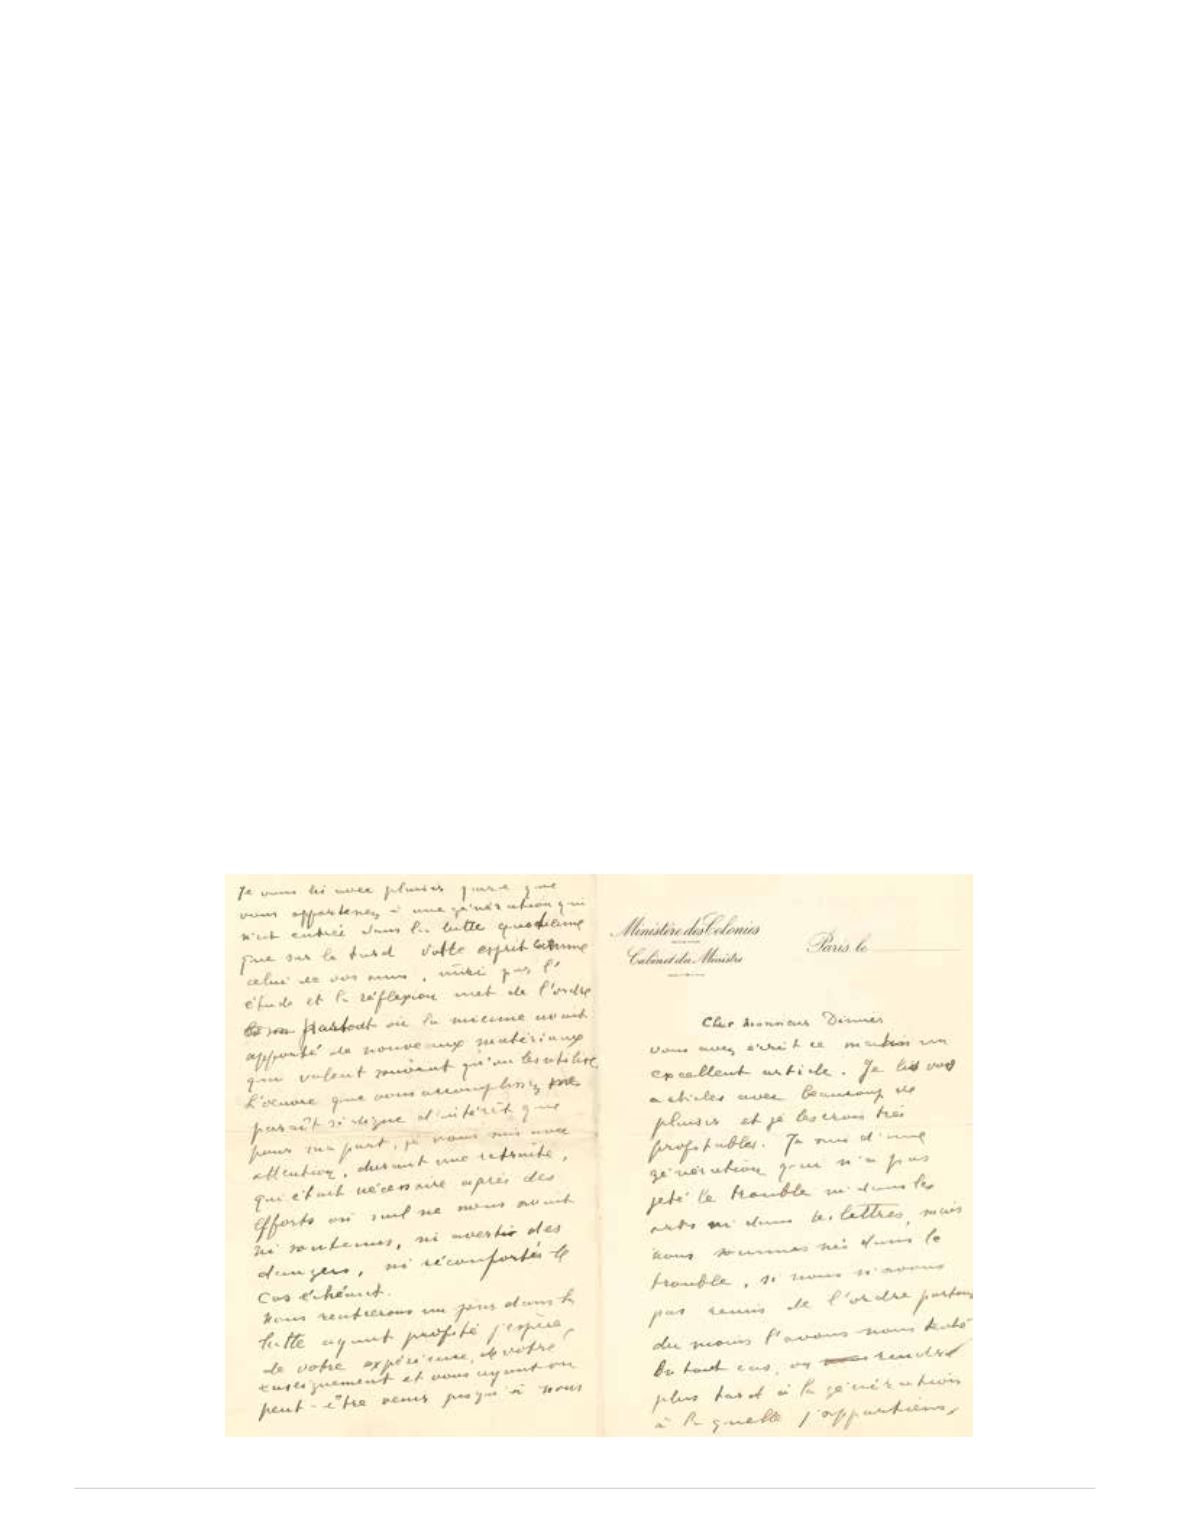 Je vous lis avec plaisir parce que
vous appartenez à une génération qui
n'est entrée dans la lutte quotidienne
que sur le tard. Votre esprit comme
celui de vos amis, mûri par l'
étude et la réflexion met de l'ordre
partout où la mienne avait
apporté de nouveaux matériaux
qui valent suivant qu'on les utilise
L'œuvre que vous accomplissez me
paraît si digne d'intérêt que
pour ma part, je vous suis avec
attention, durant une retraite,
qui était nécessaire après des
efforts où nul ne nous avait
ni soutenus, ni avertis des
dangers, ni réconfortés le
cas échéant.
Nous rentrerons un jour dans la
lutte ayant profité j'espère,
de votre expérience, de votre
enseignement et vous ayant ou
peut-être venir jusqu'à nous
Ministère des Colonies
Cabinet du Ministre
Paris, le
Cher Monsieur
vous avez écrit ce matin un
excellent article. Je lis vos
articles avec beaucoup de
plaisir et je les crois très
profitables. Je suis d'une
génération qui n'a pas
jeté le trouble ni dans les
arts ni dans les lettres, mais
nous sommes nés dans le
trouble, si nous n'avons
pas remis de l'ordre partout
du moins l'avons nous tenté
En tout cas, on rendra
plus tard à la génération
à laquelle j'appartiens,